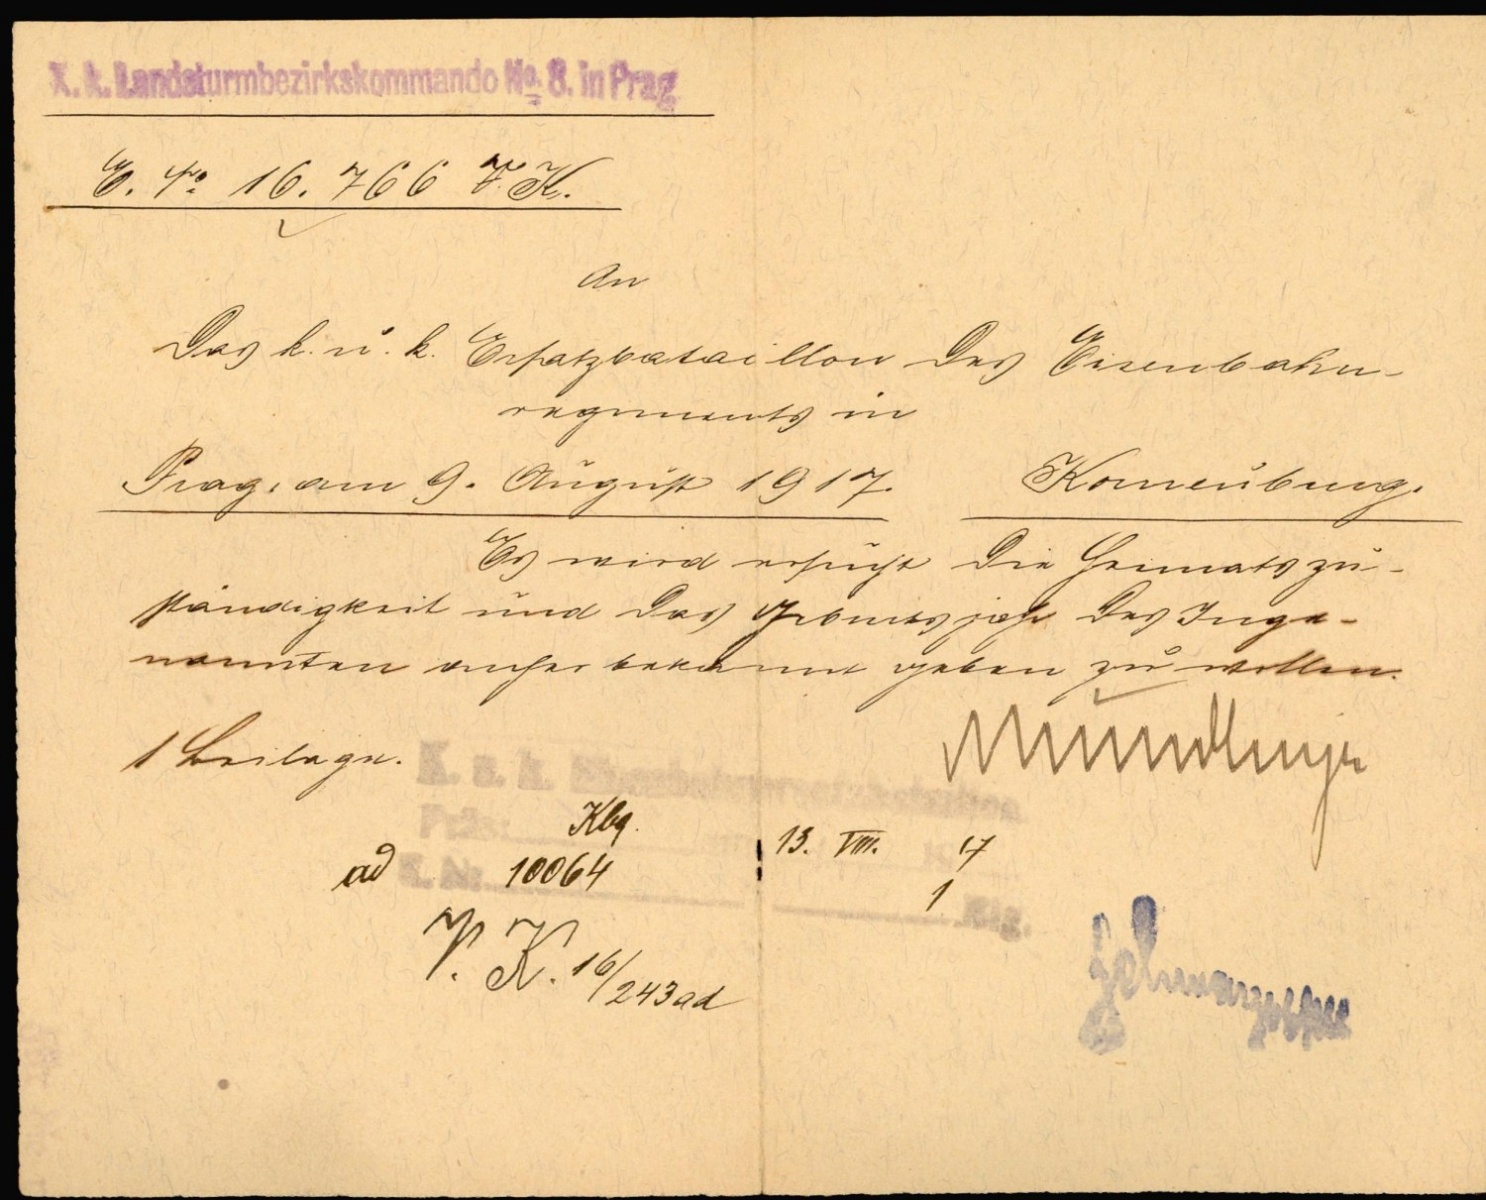 K. k. Landsturmbezirkskommando No. 8. in Prag
E. No 16.766 V. K.
An
das k. u. k. Ersatzbataillon des Eisenbahn-
regiments in
Prag, am 9. August 1917. Korneuburg.
Es wird ersucht die Heimatszu-
ständigkeit und das Geburtsjahr des Inge-
nannten anher bekannt geben zu wollen.
1 Beilage.
K. u. k.
Präs: Kbg. 13. VIII. 17
ad E. Nr. 10064 1 Blg.
V. K. 16/243 ad